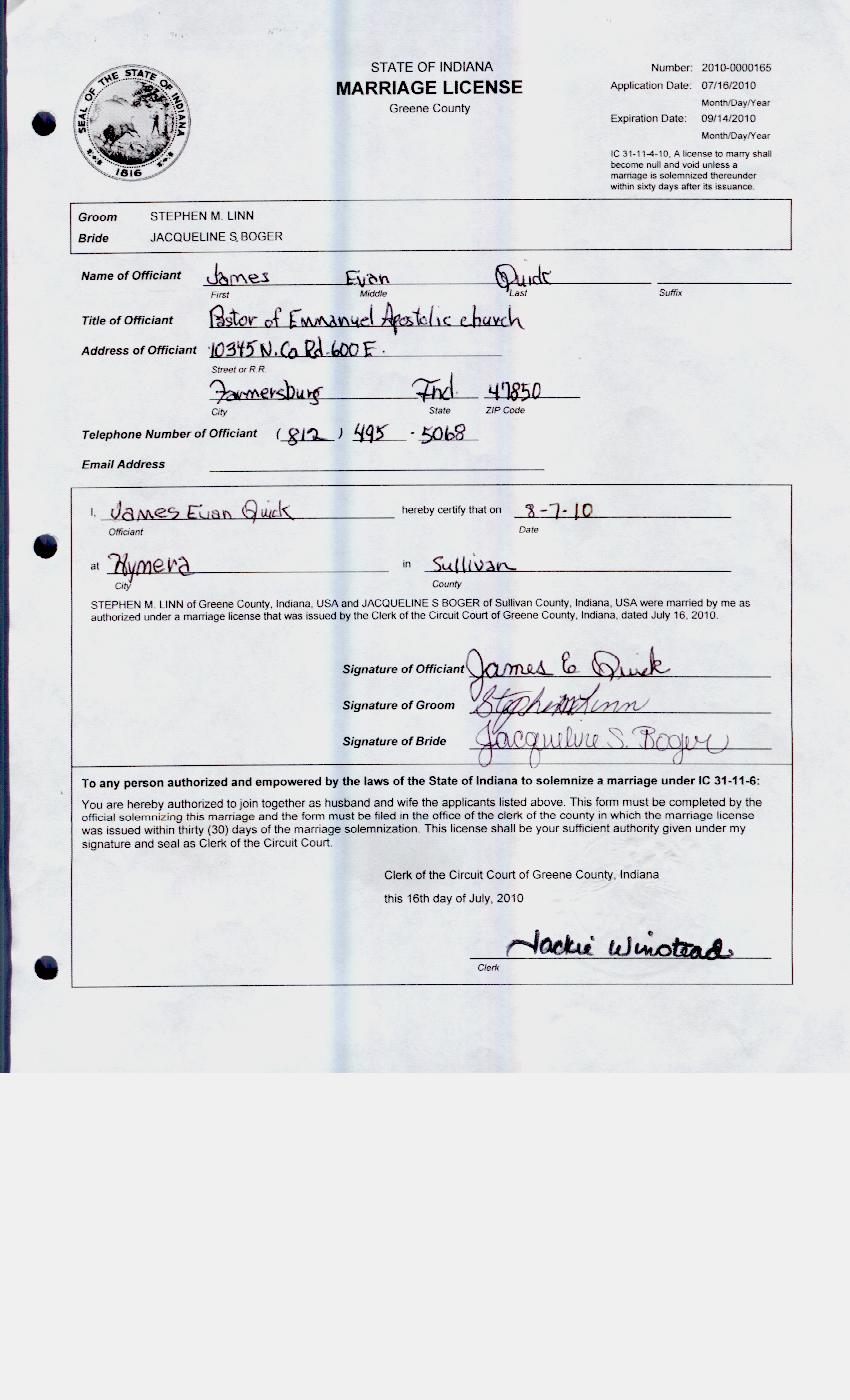 STATE OF INDIANA
MARRIAGE LICENSE
Greene County
Number: 2010-0000165
Application Date: 07/16/2010
Month/Day/Year
Expiration Date: 09/14/2010
Month/Day/Year
IC 31-11-4-10, A license to marry shall
become null and void unless a
marriage is solemnized thereunder
within sixty days after its issuance.
SEAL OF THE STATE OF INDIANA
1816
Groom STEPHEN M. LINN
Bride JACQUELINE S BOGER
Name of Officiant James Evan Quick
First Middle Last Suffix
Title of Officiant Pastor of Emmanuel Apostolic church
Address of Officiant 10345 N. Co Rd. 600 E.
Street or R.R.
Farmersburg Ind. 47850
City State ZIP Code
Telephone Number of Officiant (812) 495 - 5068
Email Address
I, James Evan Quick hereby certify that on 8-7-10
Officiant Date
at Hymera in Sullivan
City County
STEPHEN M. LINN of Greene County, Indiana, USA and JACQUELINE S BOGER of Sullivan County, Indiana, USA were married by me as
authorized under a marriage license that was issued by the Clerk of the Circuit Court of Greene County, Indiana, dated July 16, 2010.
Signature of Officiant James E Quick
Signature of Groom Stephen M Linn
Signature of Bride Jacqueline S. Boger
To any person authorized and empowered by the laws of the State of Indiana to solemnize a marriage under IC 31-11-6:
You are hereby authorized to join together as husband and wife the applicants listed above. This form must be completed by the
official solemnizing this marriage and the form must be filed in the office of the clerk of the county in which the marriage license
was issued within thirty (30) days of the marriage solemnization. This license shall be your sufficient authority given under my
signature and seal as Clerk of the Circuit Court.
Clerk of the Circuit Court of Greene County, Indiana
this 16th day of July, 2010
Jackie Winstead
Clerk